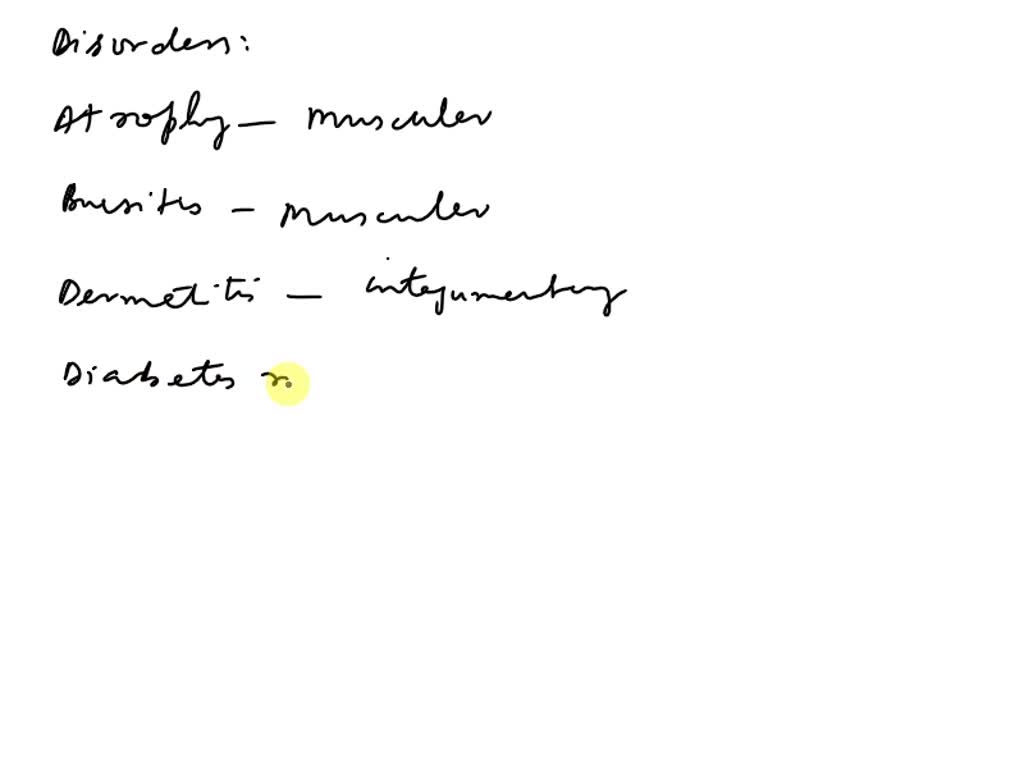 Disorders:
Atrophy - Muscular
Bursitis - Muscular
Dermatitis - integumentary
Diabetes